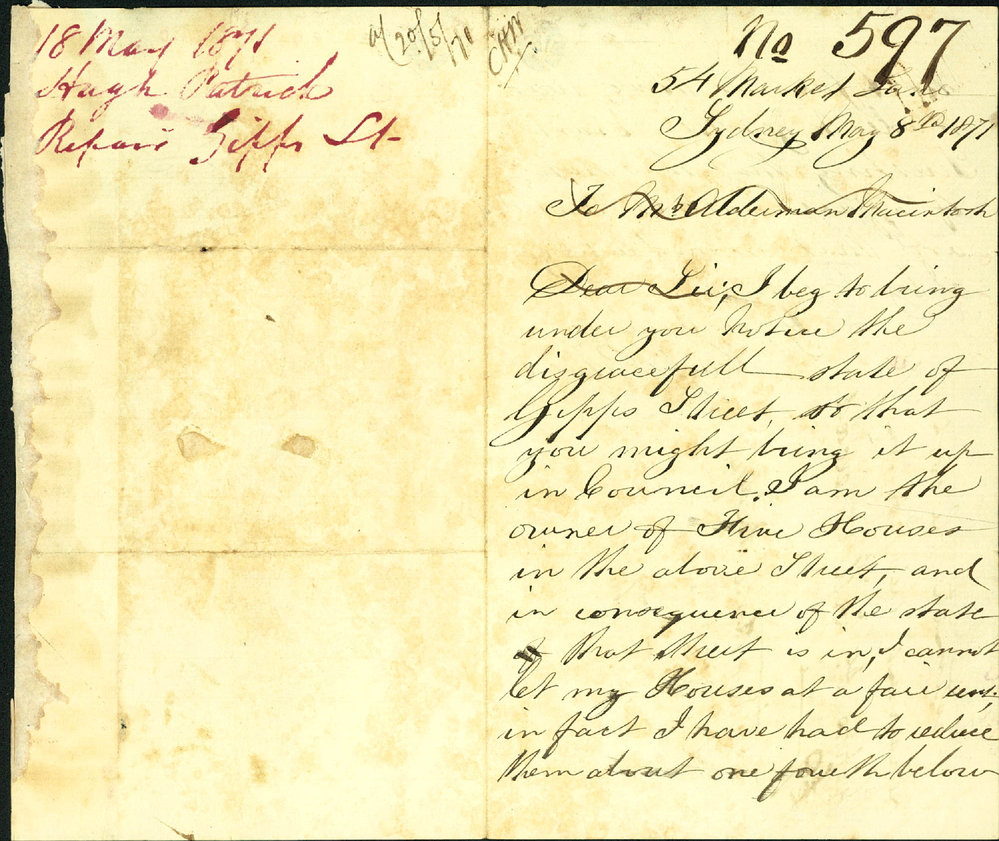 18 May 1871
Hugh Patrick
Repair Gipps St
20/5/71
No 597
54 Market Lane
Sydney May 8th 1871
To Mr Alderman Macintosh
Dear Sir, I beg to bring
under you Notice the
disgracefull state of
Gipps Street, so that
you might bring it up
in Council. I am the
owner of Five Houses
in the above Street, and
in consequence of the state
that Street is in, I cannot
let my Houses at a fair rent,
in fact I have had to reduce
them about one fourth below